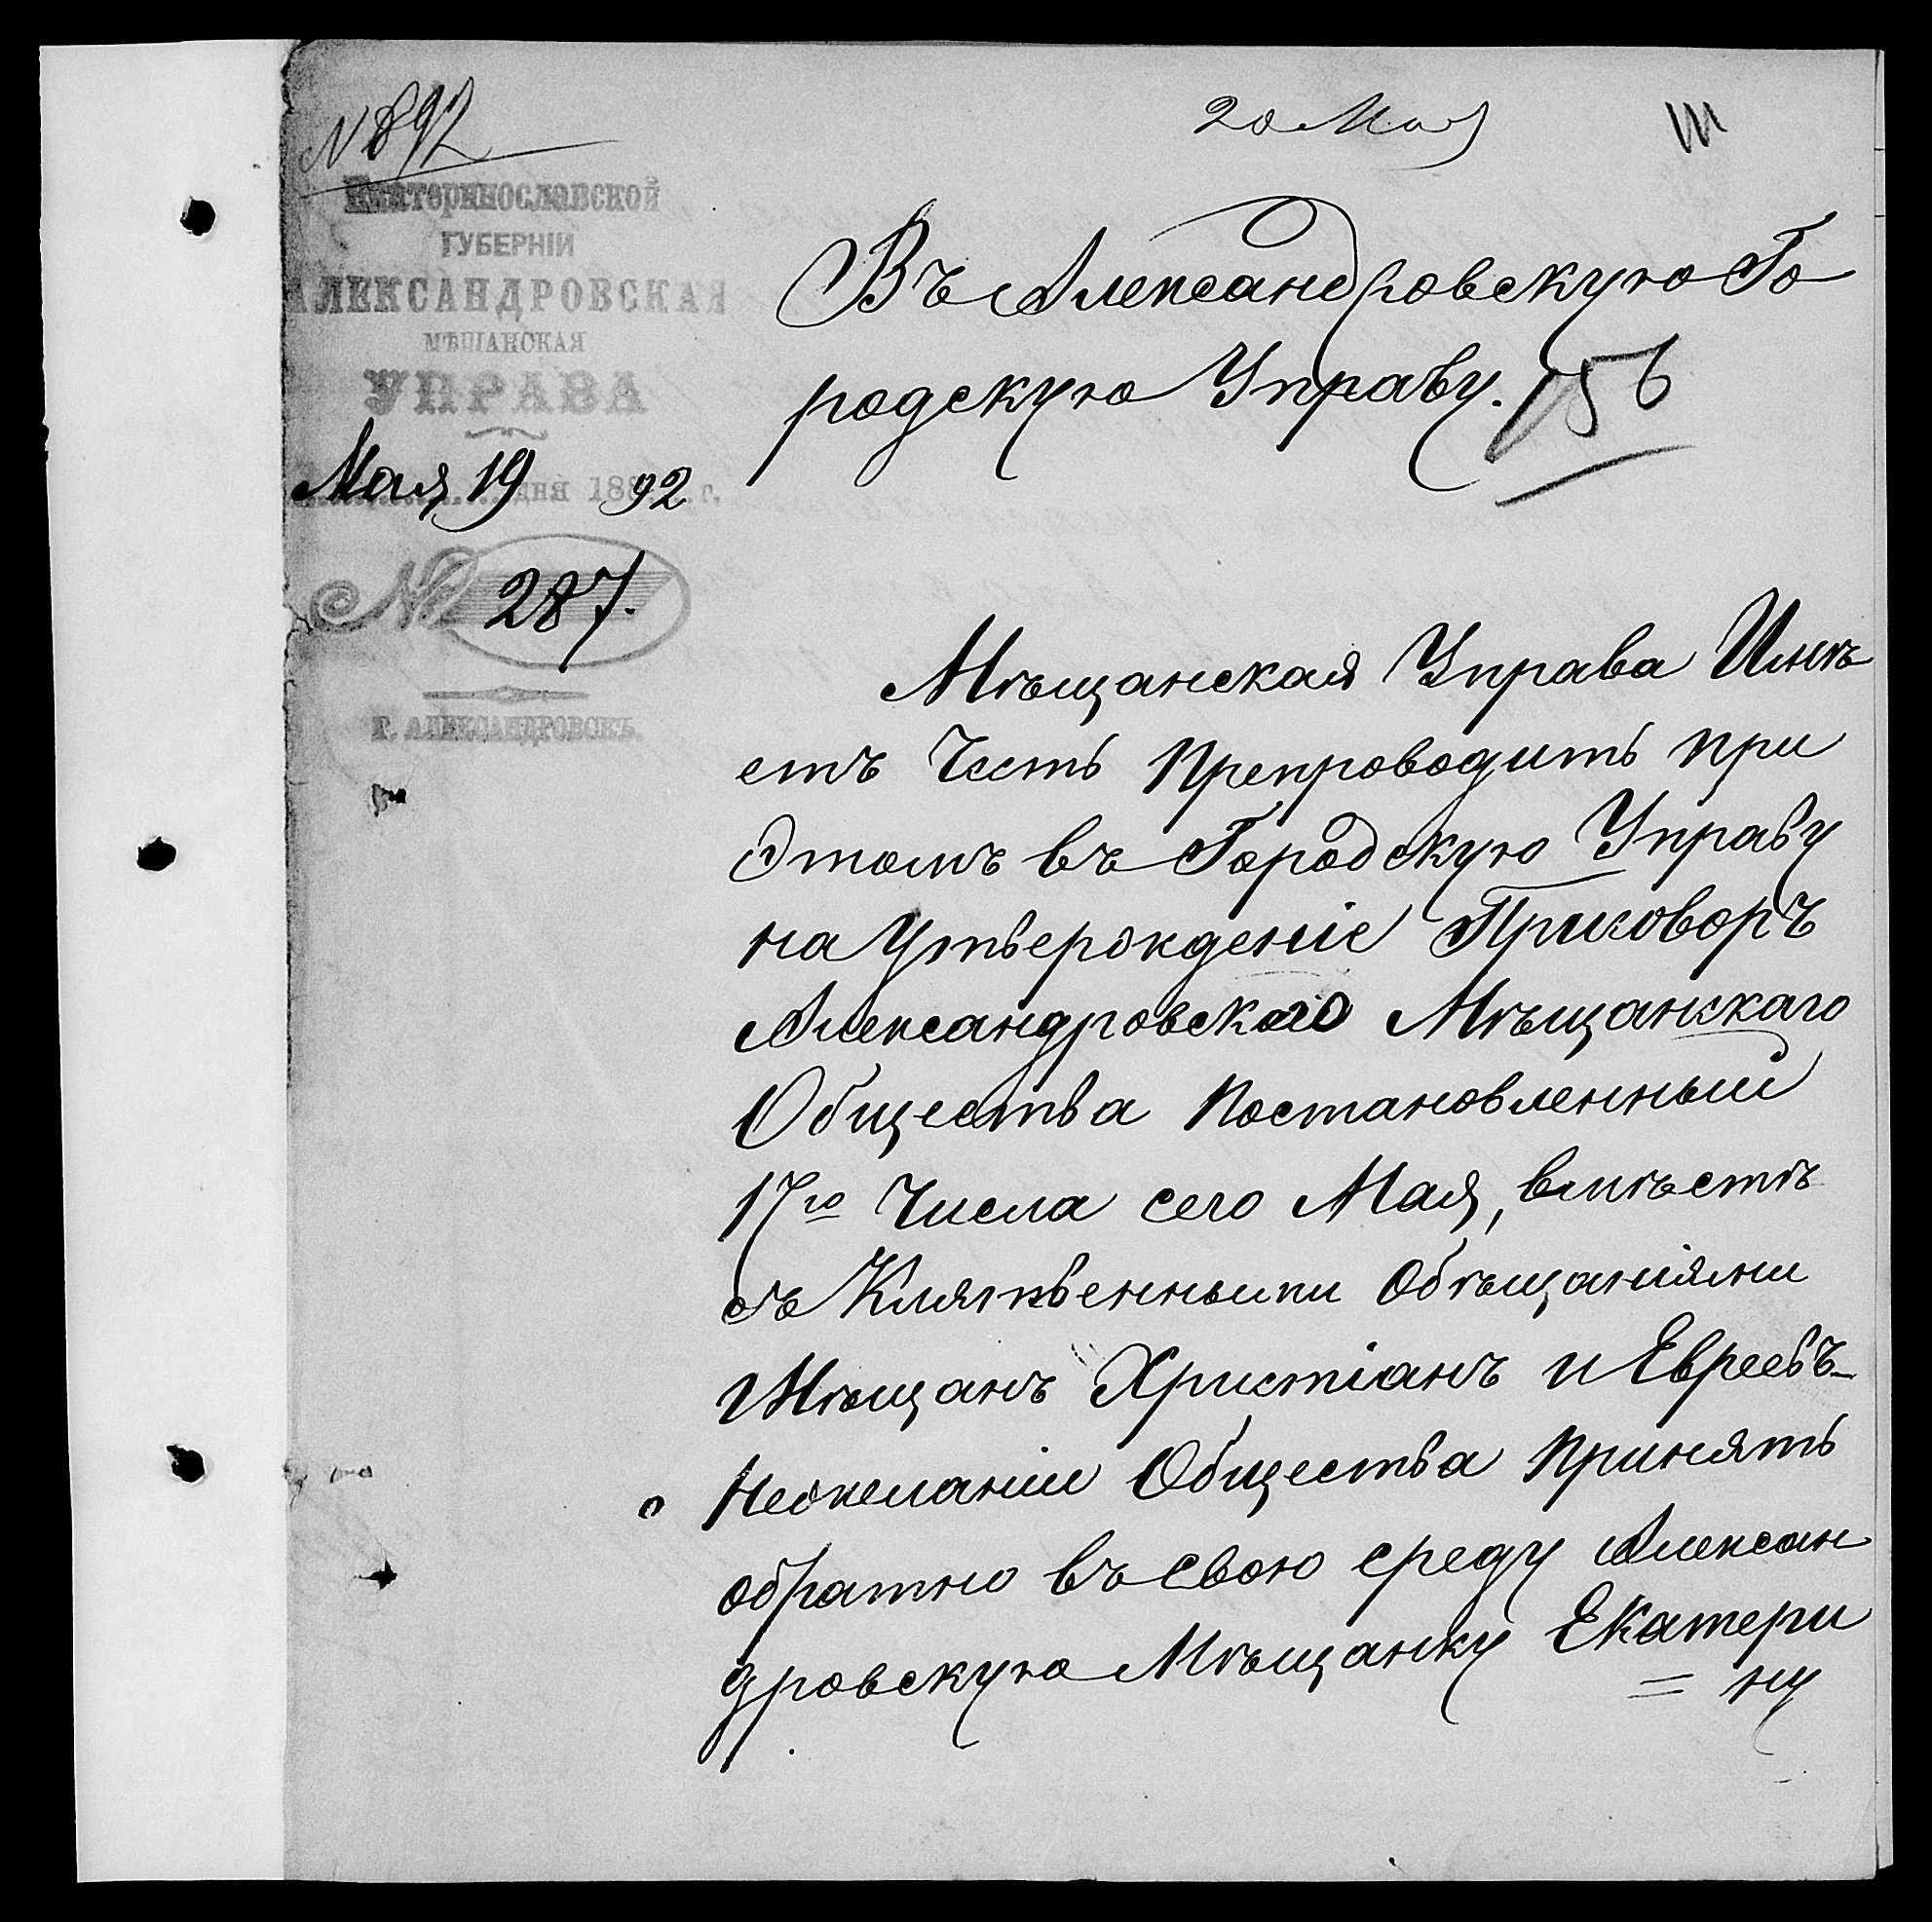 N 892
20 Мая
Екатеринославской
ГУБЕРНІИ
АЛЕКСАНДРОВСКАЯ
МѢЩАНСКАЯ
УПРАВА
Мая 19 дня 1892 г.
№ 287.
Г. АЛЕКСАНДРОВСКЪ.
Въ Александровскую Го
родскую Управу.
156
Мѣщанская Управа Имѣ
етъ Честь Препроводить при
Этомъ въ Городскую Управу
на Утвержденіе Приговоръ
Александровскаго Мѣщанскаго
Общества Постановленный
17го Числа сего Мая, вмѣстѣ
съ Клятвенными Обѣщаніями
Мѣщанъ Христіанъ и Евреевъ
о Нежеланіи Общества Принять
обратно въ свою среду Алексан
дровскую Мѣщанку Екатери
= ну